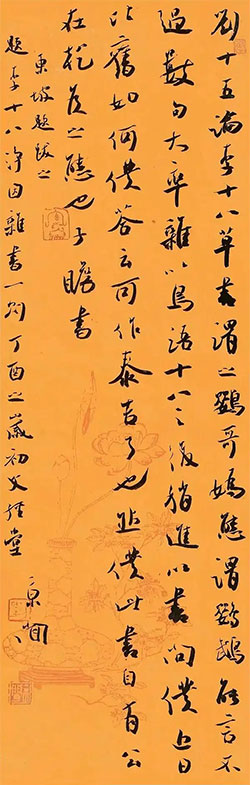 劉十五論李十八草書謂之鸚哥嬌意謂鸚鵡能言不
過數句大率雜以鳥語十八之後稍進以書問僕近日
比舊如何僕答云可作秦吉了也然僕此書自有公
在乾侯之態也子瞻書
東坡題跋之
題李十八淨因雜書一則丁酉之歲初文